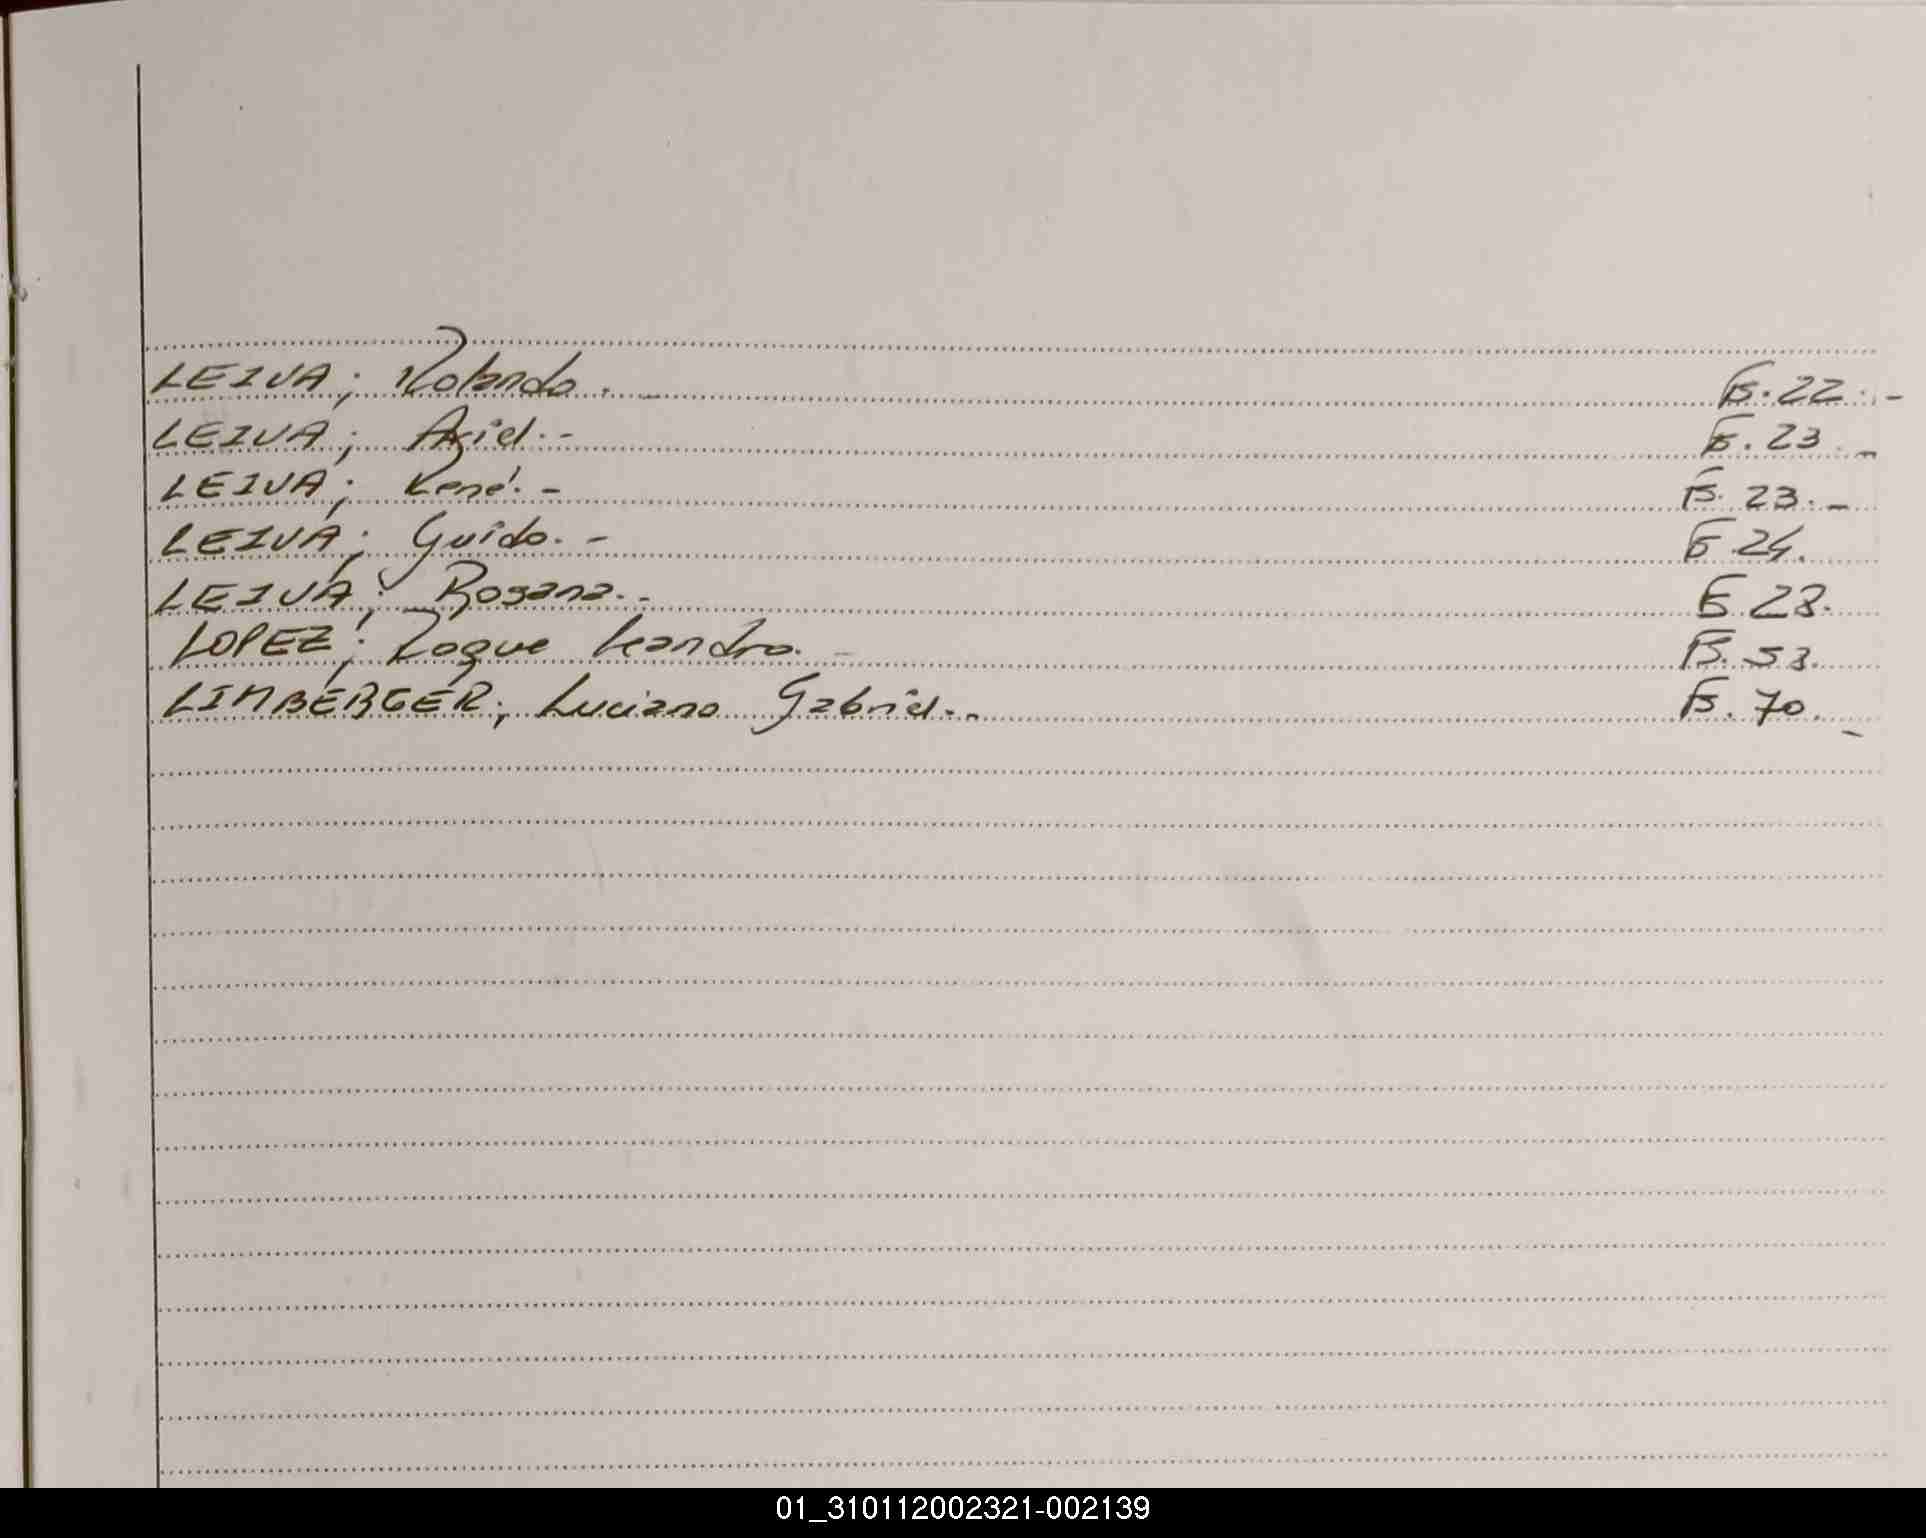 LEIVA; Rolando. - Fs. 22. -
LEIVA; Ariel. - Fs. 23. -
LEIVA; René. - Fs. 23. -
LEIVA; Guido. - Fs. 24.
LEIVA; Rosana. - Fs. 28.
LOPEZ; Roque Leandro. - Fs. 53.
LIMBERGER; Luciano Gabriel. - Fs. 70. -
01_310112002321-002139